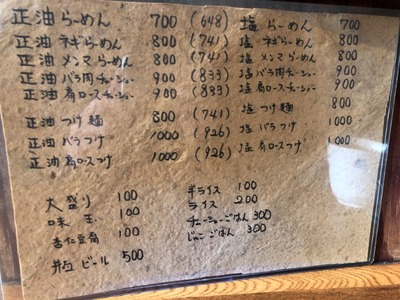 正油らーめん 700 (648) 塩らーめん 700
正油ネギらーめん 800 (741) 塩ネギらーめん 800
正油メンマらーめん 800 (741) 塩メンマらーめん 800
正油バラ肉チャーシュー 900 (833) 塩バラ肉チャーシュー 900
正油肩ロースチャーシュー 900 (833) 塩肩ロースチャーシュー 900
正油つけ麺 800 (741) 塩つけ麺 800
正油バラつけ 1000 (926) 塩バラつけ 1000
正油肩ロースつけ 1000 (926) 塩肩ロースつけ 1000
大盛り 100 半ライス 100
味玉 100 ライス 200
杏仁豆腐 100 チャーシューごはん 300
瓶ビール 500 じゃこごはん 300